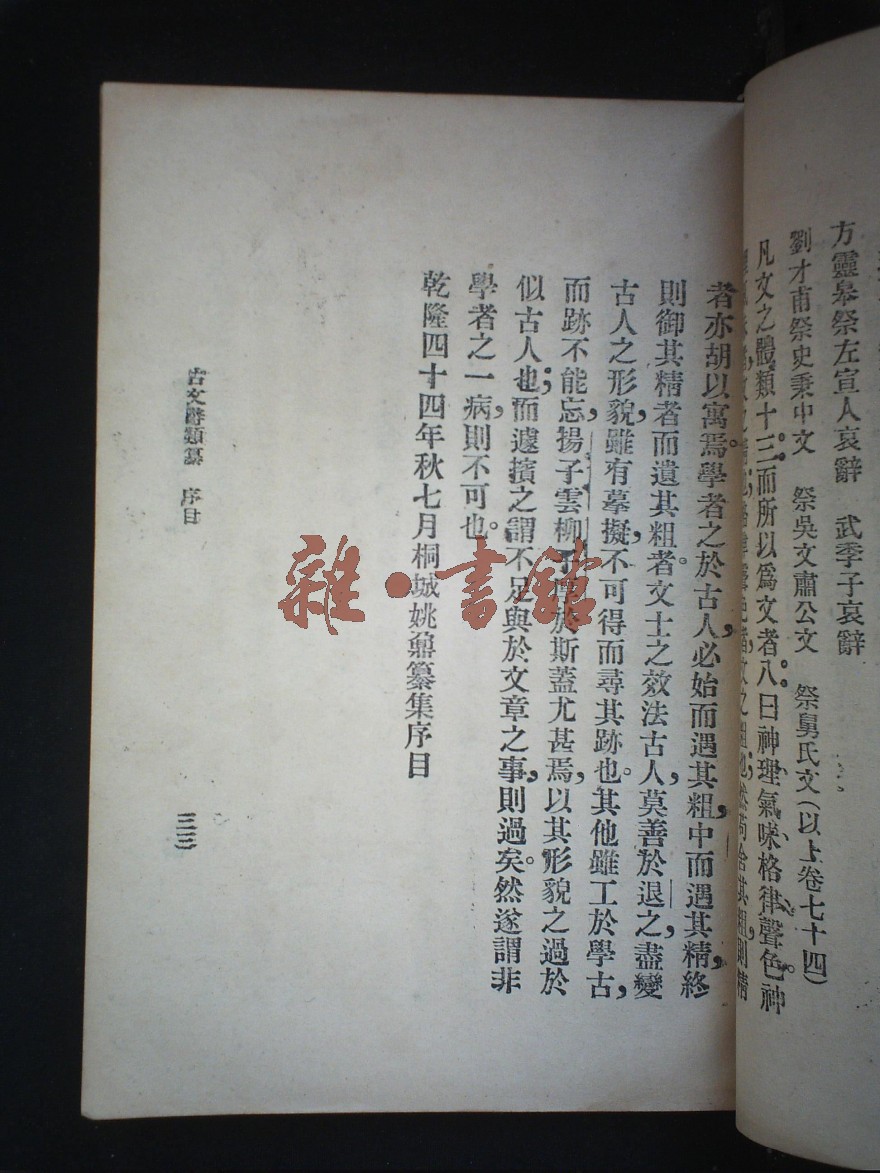 方靈皋祭左宣人哀辭　武季子哀辭
劉才甫祭史秉中文　祭吳文肅公文　祭舅氏文(以上卷七十四)
凡文之體類十三,而所以爲文者八。曰神、理、氣、味、格、律、聲、色。神
聲色者,文之粗也。然苟舍其粗,則精
者亦胡以寓焉。學者之於古人,必始而遇其粗,中而遇其精,終
則御其精者而遺其粗者。文士之效法古人,莫善於退之,盡變
古人之形貌,雖有摹擬,不可得而尋其跡也。其他雖工於學古,
而跡不能忘,揚子雲柳子厚於斯蓋尤甚焉,以其形貌之過於
似古人也;而遽擯之,謂不足與於文章之事,則過矣。然遂謂非
學者之一病,則不可也。
乾隆四十四年秋七月桐城姚鼐纂集序目
古文辭類纂　序目
三三
雜·書館